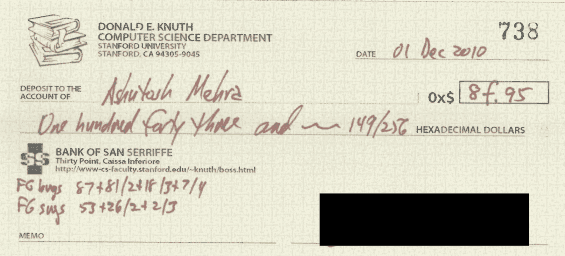 DONALD E. KNUTH
COMPUTER SCIENCE DEPARTMENT
STANFORD UNIVERSITY
STANFORD, CA 94305-9045
738
DATE 01 Dec 2010
DEPOSIT TO THE
ACCOUNT OF Ashutosh Mehra 0x$ 8f.95
One hundred forty three and 149/256 HEXADECIMAL DOLLARS
BANK OF SAN SERRIFFE
Thirty Point, Caissa Inferiore
http://www-cs-faculty.stanford.edu/~knuth/boss.html
FG bugs 87+81/2+18/3+7/4
FG sugs 53+26/2+2/3
MEMO